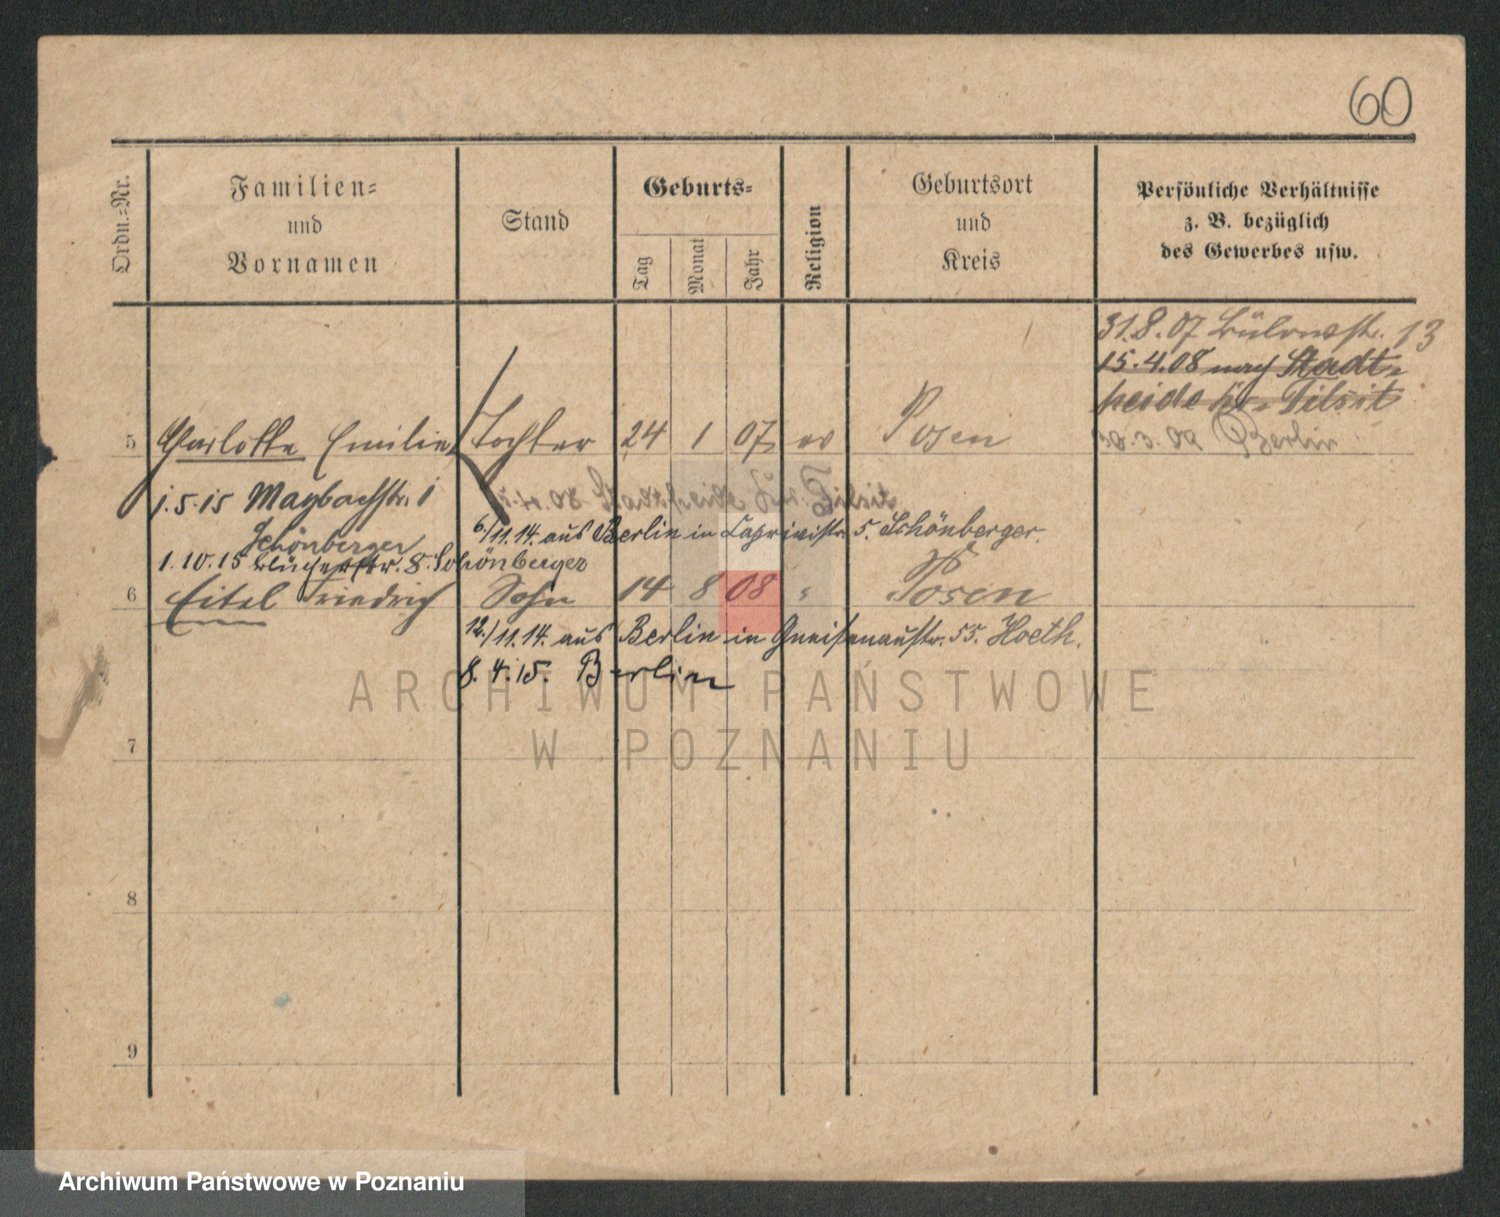 60
Ordn.-Nr.
Familien-
und
Vornamen
Stand
Geburts-
Tag
Monat
Jahr
Religion
Geburtsort
und
Kreis
Persönliche Verhältnisse
z. B. bezüglich
des Gewerbes usw.
31.8.07 Bülowstr. 13
15.4.08 nach Stadt-
heide Kr. Tilsit
5 Charlotte Emilie Tochter 24 1 07 ev Posen 30.3.09 Berlin
1.5.15 Maybachstr. 1
Schönberger
6./11.14. aus Berlin in Caprivistr. 5. Schönberger.
1.10.15 Blücherstr. 8. Schönberger
6 Eitel Friedrich Sohn 14 8 08 " Posen
12./11.14. aus Berlin in Gneisenaustr. 55. Hoeth.
8.4.15. Berlin
ARCHIWUM PAŃSTWOWE
W POZNANIU
7
8
9
Archiwum Państwowe w Poznaniu